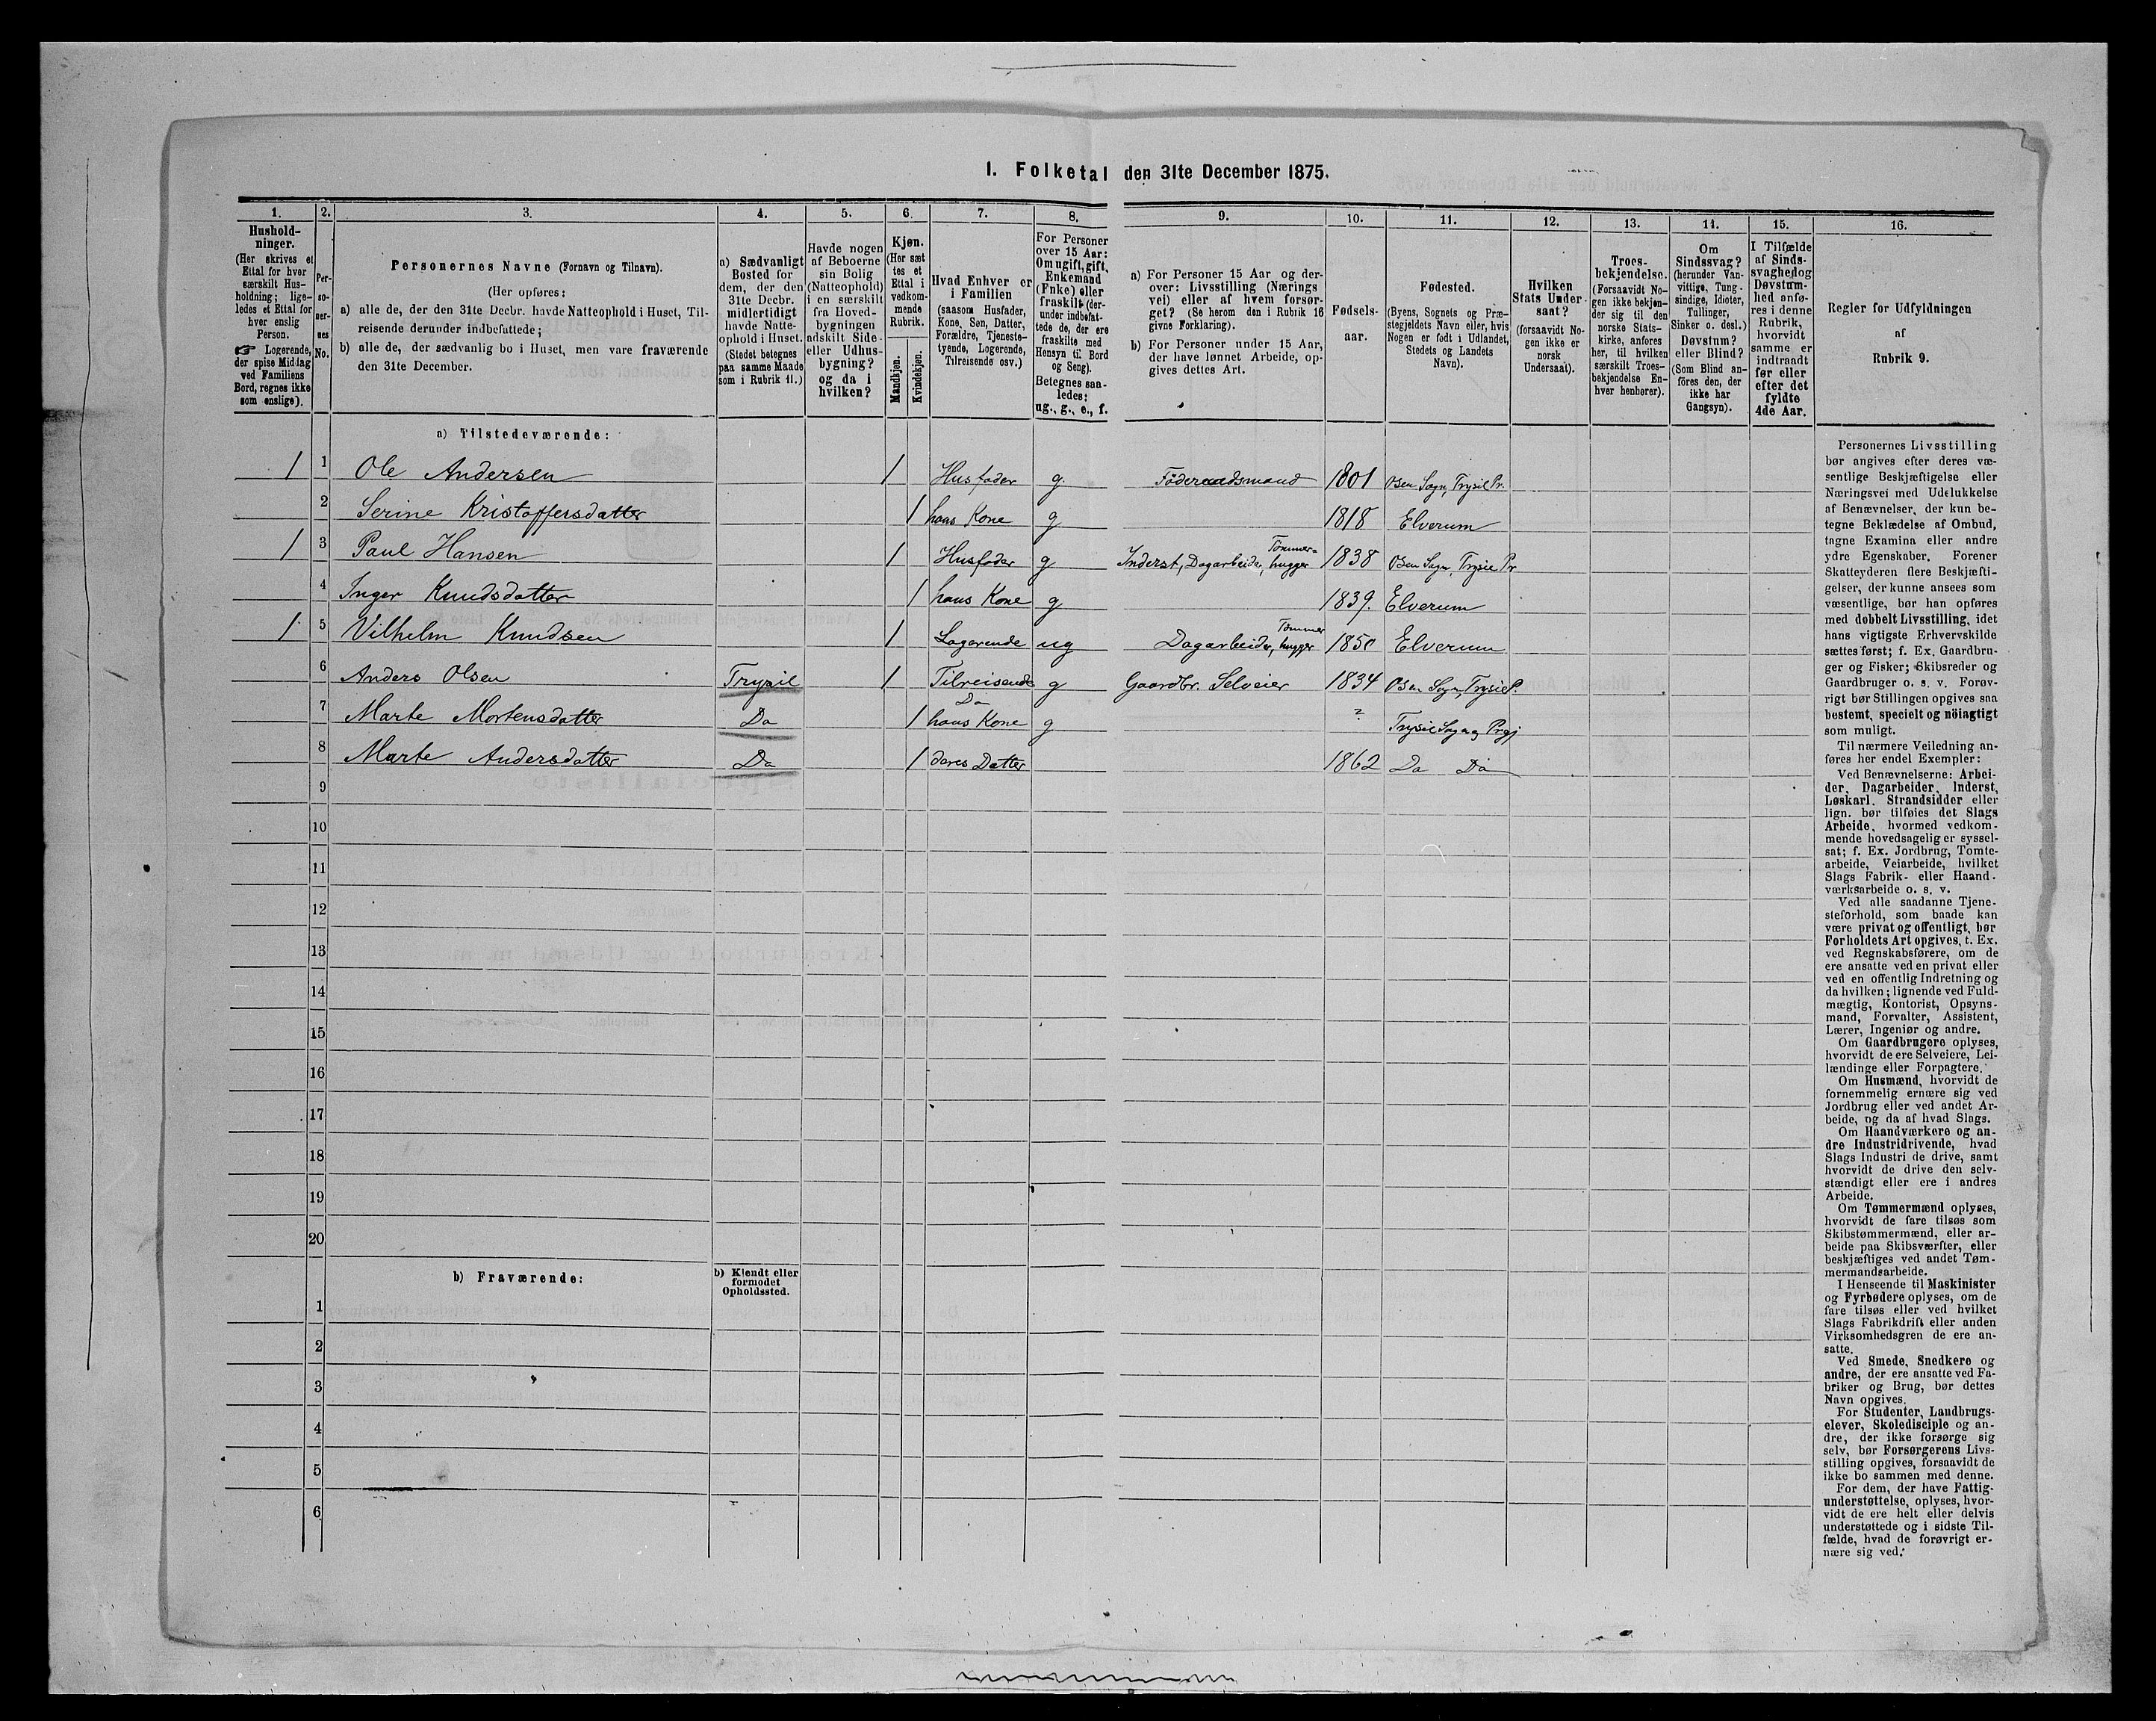 I. Folketal den 31te December 1875.
1. 2. 3. 4. 5. 6. 7. 8. 9. 10. 11. 12. 13. 14. 15. 16.
Hushold-
ninger.
(Her skrives et
Ettal for hver
særskilt Hus-
holdning; lige-
ledes et Ettal for
hver enslig
Person.
☞ Logerende,
der spise Middag
ved Familiens
Bord, regnes ikke
som enslige).
Per-
so-
ner-
nes
No.
Personernes Navne (Fornavn og Tilnavn).
(Her opføres:
a) alle de, der den 31te Decbr. havde Natteophold i Huset, Til-
reisende derunder indbefattede;
b) alle de, der sædvanlig bo i Huset, men vare fraværende
den 31te December.
a) Sædvanligt
Bosted for
dem, der den
31te Decbr.
midlertidigt
havde Natte-
ophold i Huset.
(Stedet betegnes
paa samme Maade
som i Rubrik 11.)
Havde nogen
af Beboerne
sin Bolig
(Natteophold)
i en særskilt
fra Hoved-
bygningen
adskilt Side-
eller Udhus-
bygning?
og da i
hvilken?
Kjøn.
(Her sæt
tes et
Ettal i
vedkom-
mende
Rubrik.
Mandkjøn.
Kvindekjøn.
Hvad Enhver er
i Familien
(saasom Husfader,
Kone, Søn, Datter,
Forældre, Tjeneste-
tyende, Logerende,
Tilreisende osv.)
For Personer
over 15 Aar:
Om ugift, gift,
Enkemand
(Enke) eller
fraskilt (der-
under indbefat-
tede de, der ere
fraskilte med
Hensyn til Bord
og Seng).
Betegnes saa-
ledes:
ug., g., e., f.
a) For Personer 15 Aar og der-
over: Livsstilling (Nærings
vei) eller af hvem forsør-
get? (Se herom den i Rubrik 16
givne Forklaring).
b) For Personer under 15 Aar,
der have lønnet Arbeide, op-
gives dettes Art.
Fødsels-
aar.
Fødested.
(Byens, Sognets og Præ-
stegjeldets Navn eller, hvis
Nogen er født i Udlandet,
Stedets og Landets
Navn).
Hvilken
Stats Under-
saat?
(forsaavidt No-
gen ikke er
norsk
Undersaat).
Troes-
bekjendelse.
(Forsaavidt No-
gen ikke bekjen-
der sig til den
norske Stats-
kirke, anføres
her, til hvilken
særskilt Troes-
bekjendelse En-
hver henhører).
Om
Sindssvag?
(herunder Van-
vittige, Tung-
sindige, Idioter,
Tullinger,
Sinker o. desl.)
Døvstum?
eller Blind?
(Som Blind an-
føres den, der
ikke har
Gangsyn).
I Tilfælde
af Sinds-
svaghed og
Døvstum-
hed anfø-
res i denne
Rubrik,
hvorvidt
samme er
indtraadt
før eller
efter det
fyldte
4de Aar.
Regler for Udfyldningen
af
Rubrik 9.
a) Tilstedeværende:
1 1 Ole Andersen 1 Husfader g. Föderaadsmand 1801 Osen Sogn, Trysil Pr.
2 Serine Kristoffersdatter 1 hans Kone g 1818 Elverum
1 3 Paul Hansen 1 Husfader g Inderst, Dagarbeider, Tömmer-hugger 1838 Osen Sogn, Trysil Pr
4 Inger Knudsdatter 1 hans Kone g 1839. Elverum
1 5 Vilhelm Knudsen 1 Logerende ug Dagarbeider, Tömmer hugger 1850 Elverum
6 Anders Olsen Trysil 1 Tilreisende g Gaardbr. Selveier 1834 Osen Sogn, Trysil P.
7 Marte Mortensdatter Do 1 Do hans Kone g ? Trysil Sogn og Prgj
8 Marte Andersdatter Do 1 deres Datter 1862 Do Do
9
10
11
12
13
14
15
16
17
18
19
20
b) Fraværende:
b) Kjendt eller
formodet
Opholdssted.
1
2
3
4
5
6
Personernes Livsstilling
bør angives efter deres væ-
sentlige Beskjæftigelse eller
Næringsvei med Udelukkelse
af Benævnelser, der kun be-
tegne Beklædelse af Ombud,
tagne Examina eller andre
ydre Egenskaber. Forener
Skatteyderen flere Beskjæfti-
gelser, der kunne ansees som
væsentlige, bør han opføres
med dobbelt Livsstilling, idet
hans vigtigste Erhvervskilde
sættes først; f. Ex. Gaardbru-
ger og Fisker; Skibsreder og
Gaardbruger o. s. v. Forøv-
rigt bør Stillingen opgives saa
bestemt, specielt og nöiagtigt
som muligt.
Til nærmere Veiledning an-
føres her endel Exempler:
Ved Benævnelserne: Arbei-
der, Dagarbeider, Inderst,
Løskarl, Strandsidder eller
lign. bør tilføies det Slags
Arbeide, hvormed vedkom-
mende hovedsagelig er syssel-
sat; f. Ex. Jordbrug, Tomte-
arbeide, Veiarbeide, hvilket
Slags Fabrik- eller Haand-
værksarbeide o. s. v.
Ved alle saadanne Tjene-
steforhold, som baade kan
være privat og offentligt, bør
Forholdets Art opgives, t. Ex.
ved Regnskabsførere, om de
ere ansatte ved en privat eller
ved en offentlig Indretning og
da hvilken; lignende ved Fuld-
mægtig, Kontorist, Opsyns-
mand, Forvalter, Assistent,
Lærer, Ingeniør og andre.
Om Gaardbrugere oplyses,
hvorvidt de ere Selveiere, Lei-
lændinge eller Forpagtere.
Om Husmænd, hvorvidt de
fornemmelig ernære sig ved
Jordbrug eller ved andet Ar-
beide, og da af hvad Slags.
Om Haandværkere og an-
dre Industridrivende, hvad
Slags Industri de drive, samt
hvorvidt de drive den selv-
stændigt eller ere i andres
Arbeide.
Om Tømmermænd oplyses,
hvorvidt de fare tilsøs som
Skibstømmermænd, eller ar-
beide paa Skibsværfter, eller
beskjæftiges ved andet Tøm-
mermandsarbeide.
I Henseende til Maskinister
og Fyrbødere oplyses, om de
fare tilsøs eller ved hvilket
Slags Fabrikdrift eller anden
Virksomhedsgren de ere an-
satte.
Ved Smede, Snedkere og
andre, der ere ansatte ved Fa-
briker og Brug, bør dettes
Navn opgives.
For Studenter, Landbrugs-
elever, Skoledisciple og an-
dre, der ikke forsørge sig
selv, bør Forsørgerens Livs-
stilling opgives, forsaavidt de
ikke bo sammen med denne.
For dem, der have Fattig-
understøttelse, oplyses, hvor-
vidt de ere helt eller delvis
understøttede og i sidste Til-
fælde, hvad de forøvrigt er-
nære sig ved.